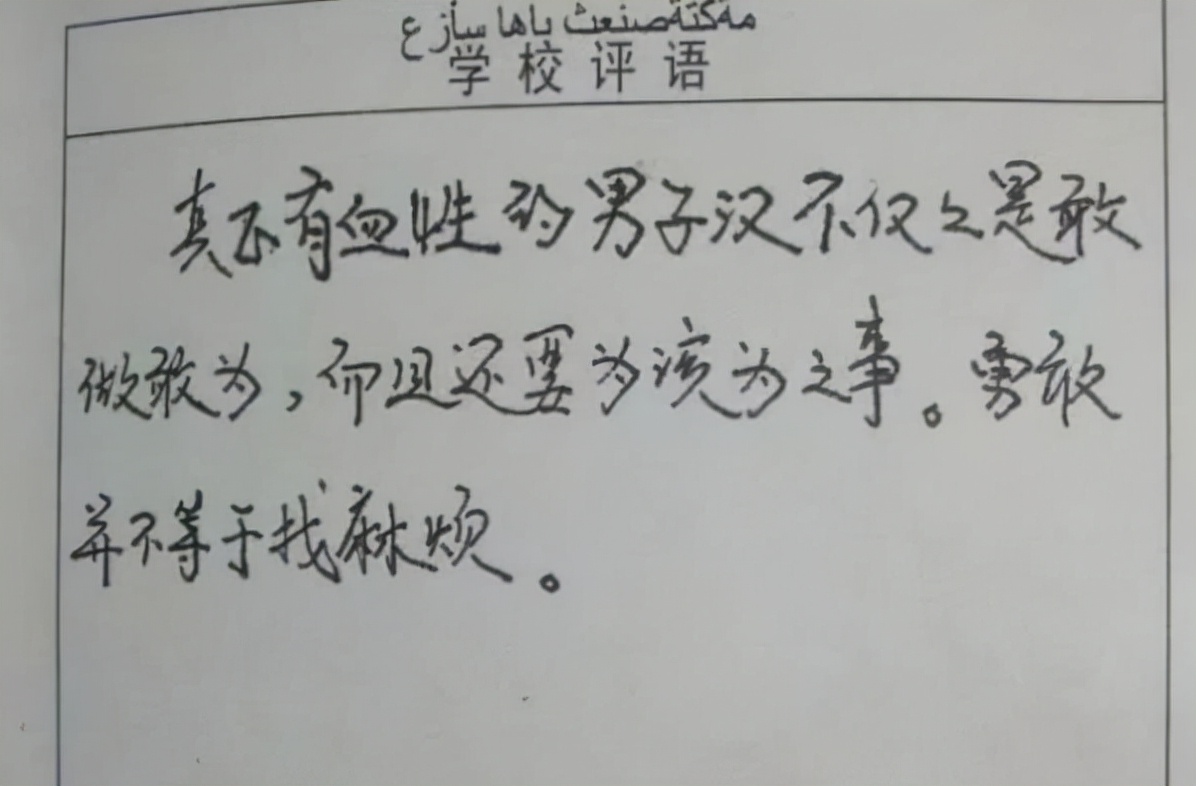 مەكتەپنىڭ باھاسى
学校评语
真正有血性的男子汉不仅仅是敢
做敢为，而且还要为该为之事。勇敢
并不等于找麻烦。